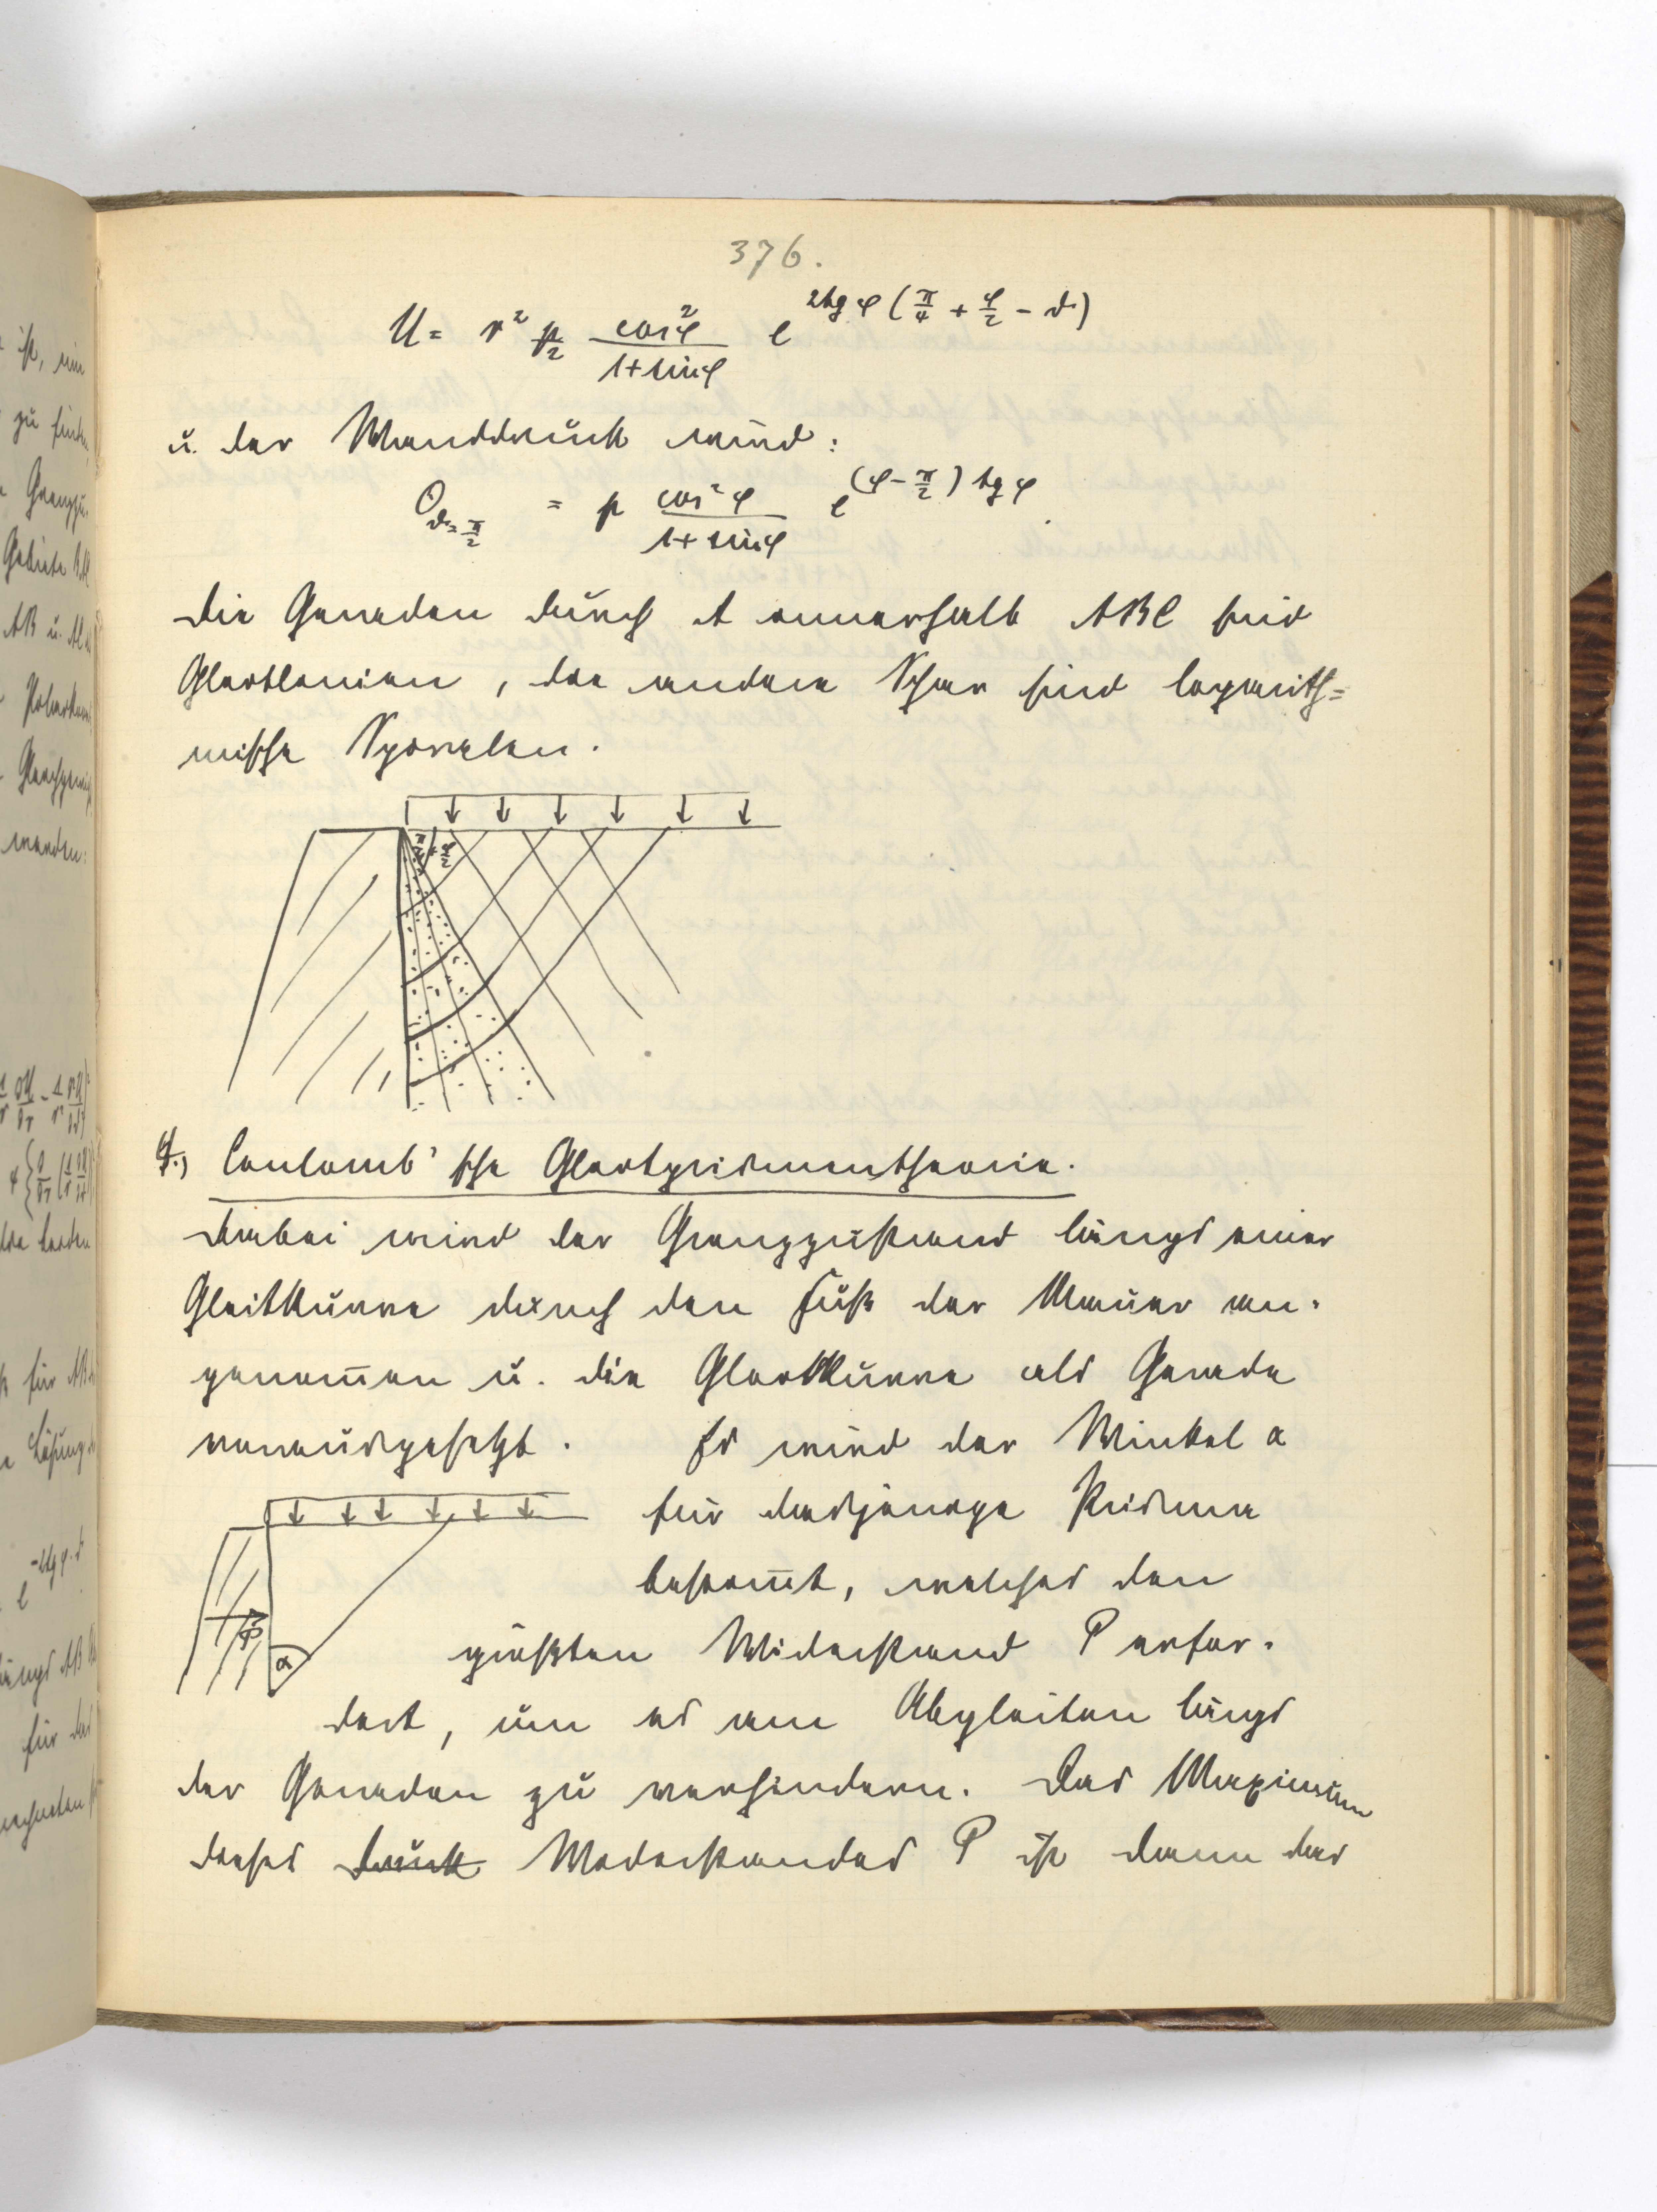 376.
U = r² p/2 cos²φ/(1+sinφ) e^{2tgφ(π/4 + φ/2 - ϑ)}
u. der Wanddruck wird:
σ_{ϑ=π/2} = p cos²φ/(1+sinφ) e^{(φ-π/2)tgφ}.
Die Geraden durch A innerhalb ABC sind
Gleitlinien, die andere Schar sind logarith=
mische Spiralen.
π/4 + φ/2
f.) Coulomb'sche Gleitprismentheorie.
Dabei wird der Grenzzustand längs einer
Gleitkurve durch den Fuß der Mauer an-
genom̄en u. die Gleitkurve als Gerade
vorausgesetzt. Es wird der Winkel α
für dasjenige Prisma
bestim̄t, welches den
P
α
größten Widerstand P erfor-
dert, um es am Abgleiten längs
der Geraden zu verhindern. Das Maximum
dieses Druck Widerstandes P ist dann das